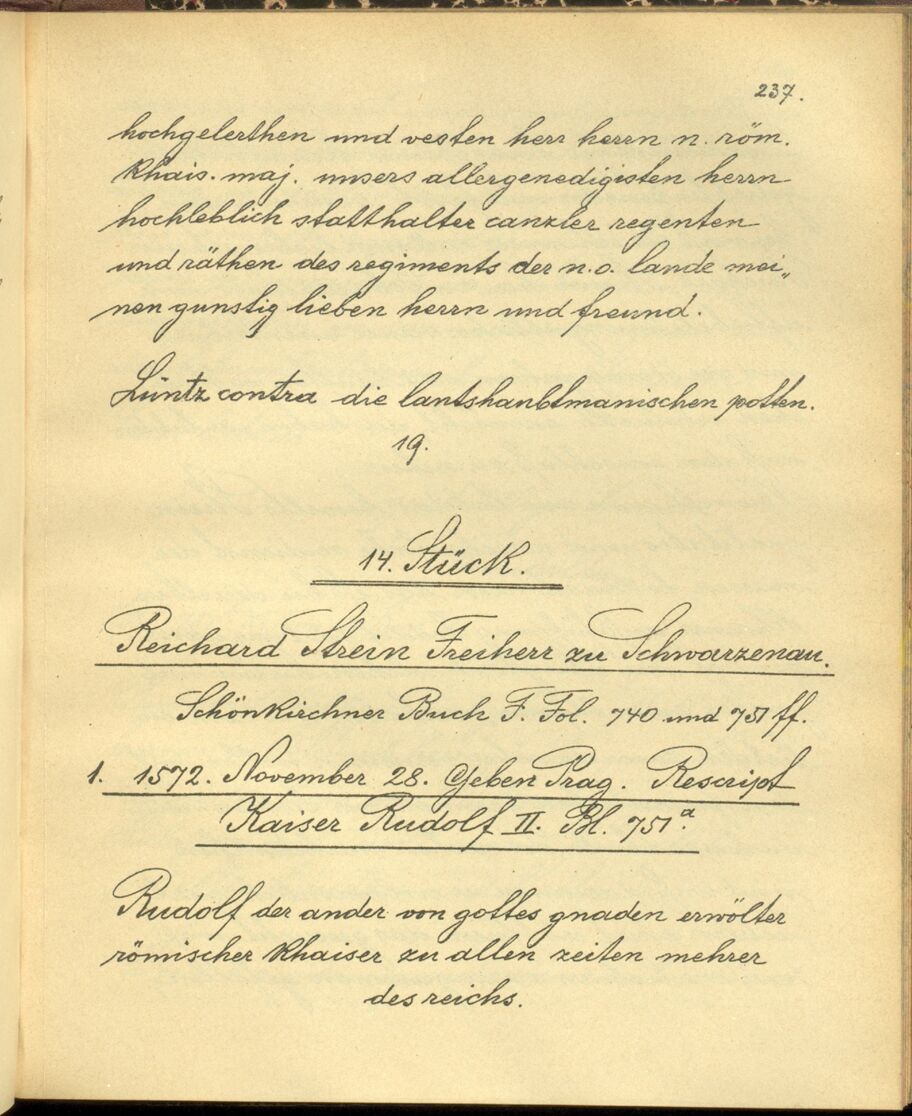 237.
hochgelerthen und vesten herr herrn n. röm.
khais. maj. unsers allergenedigisten herrn
hochleblich statthalter canzler regenten
und räthen des regiments der n.o. lande mei„
nen gunstig lieben herrn und freund.
Lüntz contra die lantshaubtmanischen potten.
19.
14. Stück.
Reichard Strein Freiherr zu Schwarzenau.
Schönkirchner Buch F. Fol. 740 und 751 ff.
1. 1572. November 28. Geben Prag. Rescript
Kaiser Rudolf II. Bl. 751a.
Rudolf der ander von gottes gnaden erwölter
römischer khaiser zu allen zeiten mehrer
des reichs.